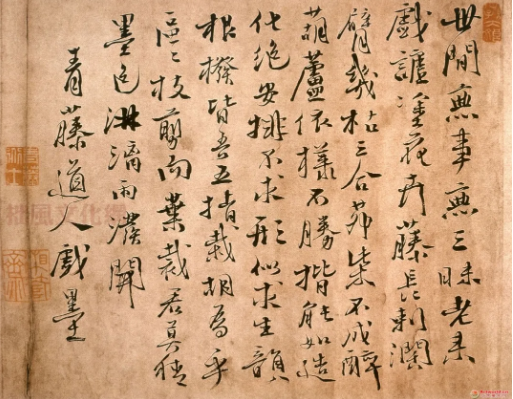 世間無事無三昧老來
戲謔塗花卉藤長刺闊
臂幾枯三合茅柴不成醉
葫蘆依樣不勝揩能如造
化絕安排不求形似求生韻
根撥皆吾五指栽胡為乎
區區枝剪而葉裁君莫猜
墨色淋漓雨潑開
青藤道人戲墨